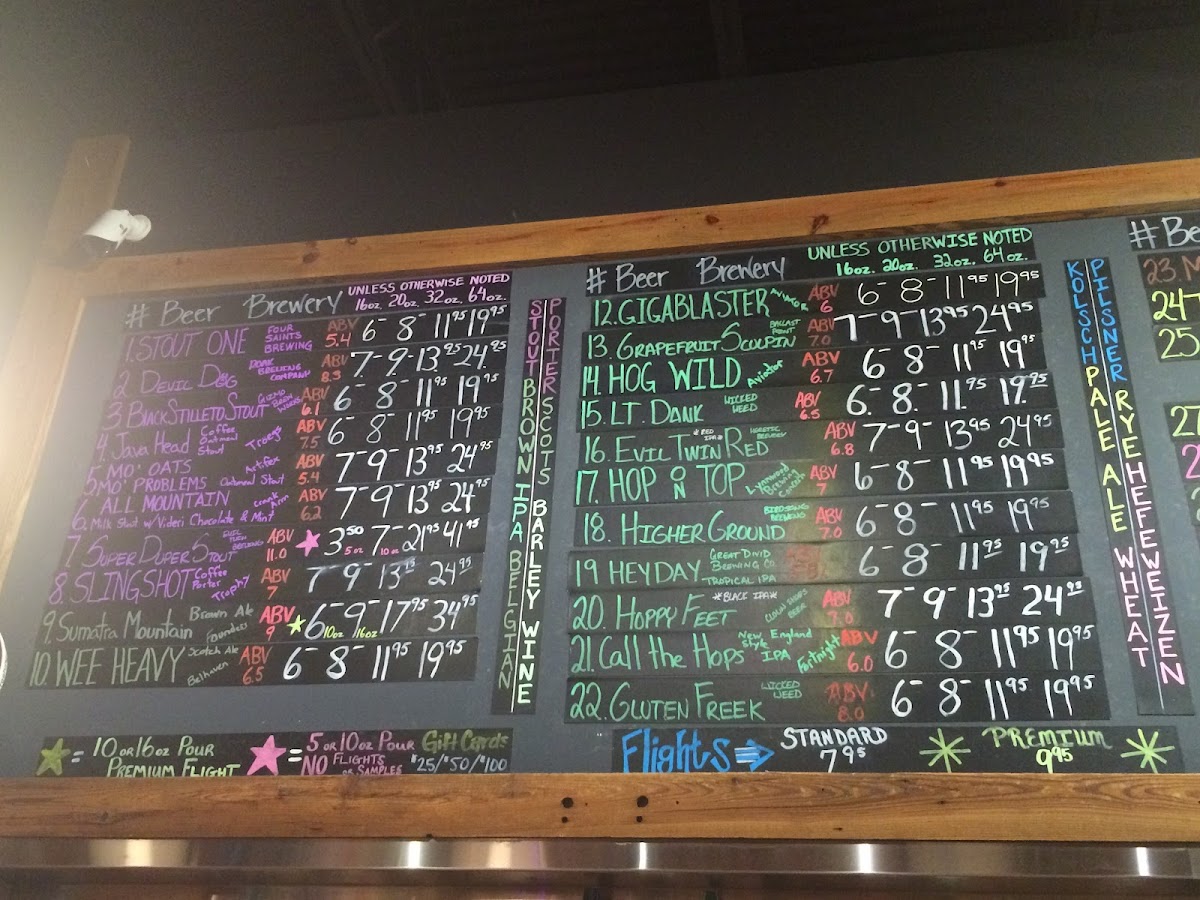 # Beer Brewery UNLESS OTHERWISE NOTED
16oz. 20oz. 32oz. 64oz.
1. STOUT ONE FOUR SAINTS BREWING ABV 5.4 6- 8- 11 95 19 95
2. DEVIL DOG DARK BREWING COMPANY ABV 8.3 7- 9- 13 95 24 95
3 BLACK STILLETO STOUT GIZMO BREW WORKS ABV 6.1 6- 8- 11 95 19 95
4. Java Head Coffee Oatmeal Stout Troegs ABV 7.5 6- 8- 11 95 19 95
5 MO' OATS
MO' PROBLEMS Oatmeal Stout ABV 5.4 7- 9- 13 95 24 95
ALL MOUNTAIN Crank Arm
6. Milk Stout w/ Videri Chocolate & Mint ABV 6.2 7- 9- 13 95 24 95
7 SUPER DUPER STOUT ABV 11.0 3 50 5 oz 7- 10 oz 21 95 41 95
8. SLINGSHOT Coffee Porter Trophy ABV 7 7- 9- 13 95 24 95
9. Sumatra Mountain Brown Ale Founders ABV 9 6- 10oz 9- 16oz 17 95 34 95
10. WEE HEAVY Scotch Ale Belhaven ABV 6.5 6- 8- 11 95 19 95
= 10 OR 16 OZ POUR
PREMIUM FLIGHT
= 5 OR 10 OZ POUR
NO FLIGHTS OR SAMPLES
Gift Cards
$25/$50/$100
STOUT BROWN IPA BELGIAN
PORTER SCOTS BARLEY WINE
# Beer Brewery UNLESS OTHERWISE NOTED
16oz. 20oz. 32oz. 64oz.
12. GIGABLASTER AVIATOR ABV 6 6- 8- 11 95 19 95
13. GRAPEFRUIT SCULPIN BALLAST POINT ABV 7.0 7- 9- 13 95 24 95
14. HOG WILD Aviator ABV 6.7 6- 8- 11 95 19 95
15. LT. DANK WICKED WEED ABV 6.5 6- 8- 11 95 19 95
16. EVIL TWIN RED *RED IPA* HERETIC BREWERY ABV 6.8 7- 9- 13 95 24 95
17. HOP ON TOP Lynnwood Brewing Concern ABV 7 6- 8- 11 95 19 95
18. HIGHER GROUND BIRDSONG BREWING ABV 7.0 6- 8- 11 95 19 95
19 HEYDAY GREAT DIVID BREWING CO TROPICAL IPA 6- 8- 11 95 19 95
20. HOPPY FEET *BLACK IPA* CLOWN SHOES BEER ABV 7.0 7- 9- 13 95 24 95
21. Call the Hops New England Style IPA Fortnight ABV 6.0 6- 8- 11 95 19 95
22. GLUTEN FREEK WICKED WEED ABV 8.0 6- 8- 11 95 19 95
Flights STANDARD 7 95 PREMIUM 9 95
KOLSCH PALE ALE WHEAT
PILSNER RYE HEFEWEIZEN
# Be
23.
24
25
27